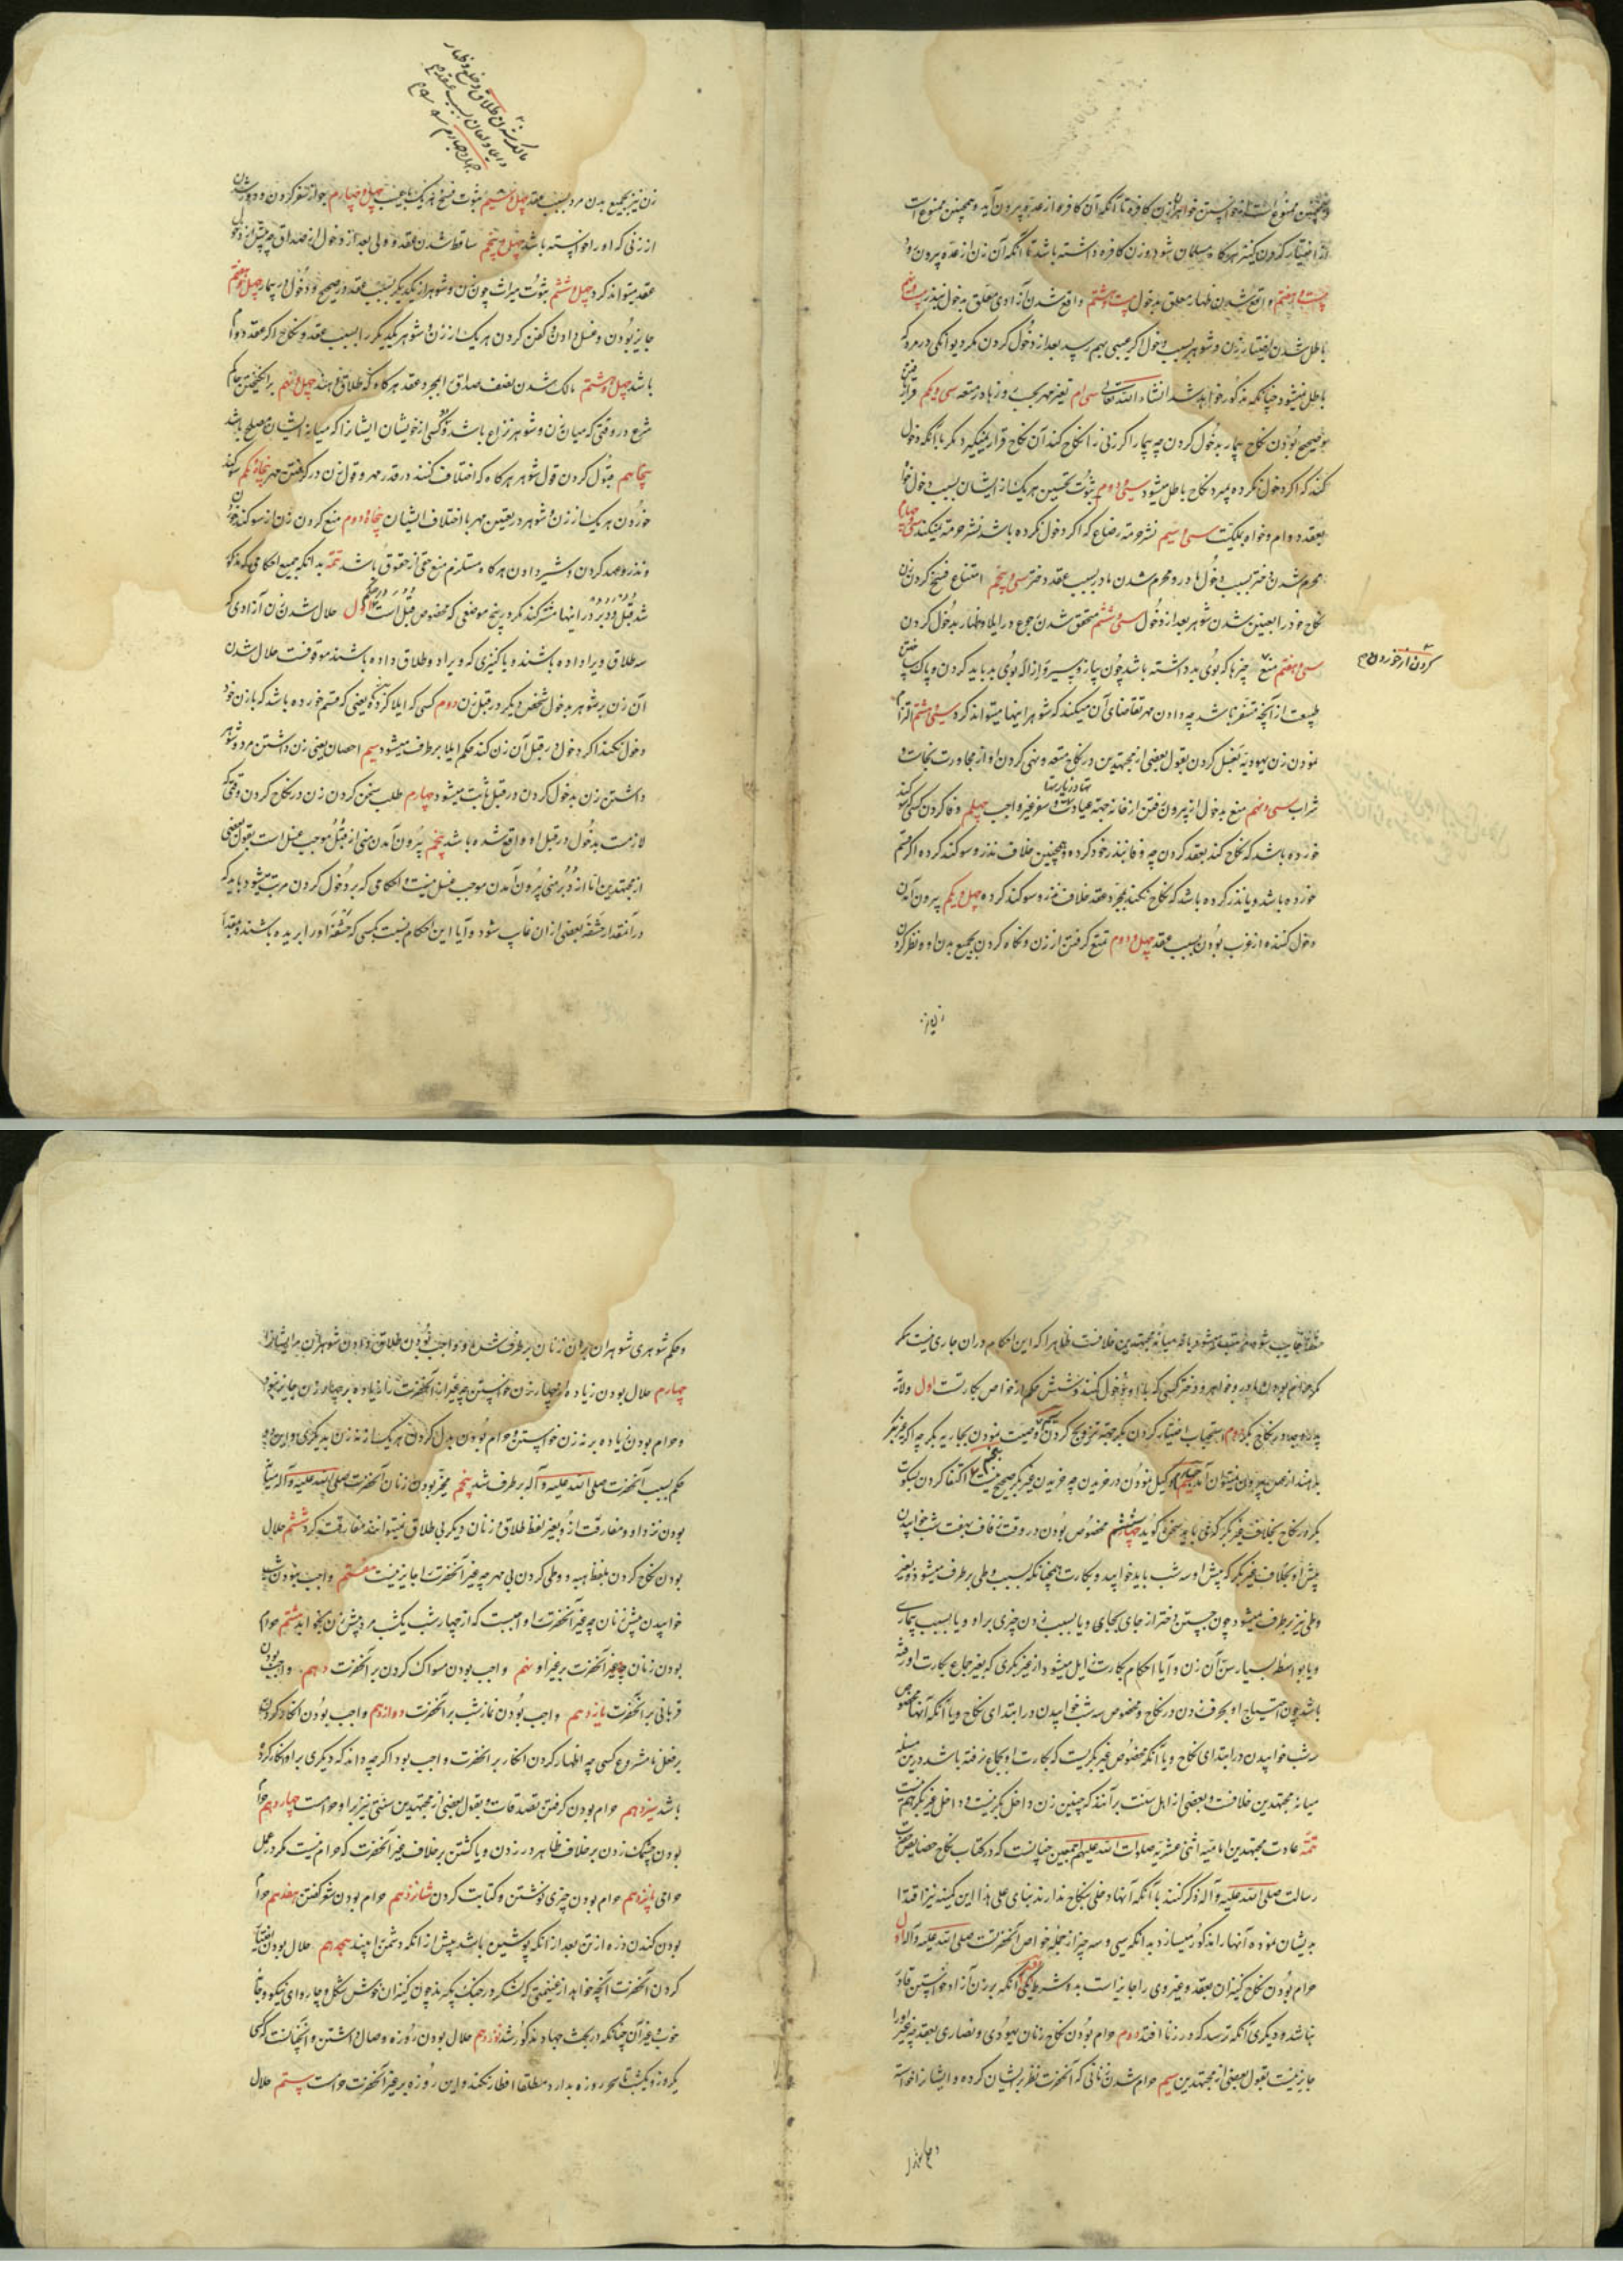 وهمچنین ممنوع است از خواستن خواهر زن کافره تا آنکه آن کافره از عده بیرون آید وهمچنین ممنوع است
از اختیار کردن کنیز هرگاه مسلمان شود وزن کافره داشته باشد تا آنکه آن زن از عده بیرون رود
بیست وهفتم واقع شدن ظهار معلق بدخول بیست وهشتم واقع شدن آزادی معلق بدخول بنذر بیست ونهم
باطل شدن اختیار زن وشوهر بسبب دخول اگر عیبی بهم رسد بعد از دخول کردن مگر دیوانگی در مرد که
باطل نمیشود چنانکه مذکور خواهد شد انشاء الله تعالی سی ام تعیر مهر بحسب روزها در متعه سی ویکم قرار گرفتن
وصحیح بودن نکاح بیمار بدخول کردن چه بیمار اگر زنی را نکاح کند آن نکاح قرار نمیگیرد مگر بآنکه دخول
کند که اگر دخول نکرده بمیرد نکاح باطل میشود سی ودوم ثبوت تحصین هریک از ایشان بسبب دخول خواه
بعقد دوام وخواه بملکیت سی وسیم نشر حرمة رضاع که اگر دخول نکرده باشد نشر حرمة نمیکند سی وچهارم
محرم شدن دختر بسبب دخول مادر ومحرم شدن مادر بسبب عقد دختر سی وپنجم امتناع فسخ کردن زن
نکاح خود را بعنین شدن شوهر بعد از دخول سی وششم متحقق شدن رجوع در ایلا وظهار بدخول کردن
سی وهفتم منع چیزها که بوی بد داشته باشد چون پیاز وسیر وازاله بوی بد باید کردن وپاک ساختن
کردن از خوردن
طبیعت از آنچه متنفر باشد چه دادن مهر تقاضای آن میکند که شوهر اینها میتواند کرد سی وهشتم الزام
نمودن زن یهودیه بغسل کردن بقول بعضی از مجتهدین در نکاح متعه ونهی کردن او از مجاورت نجاسات و
شراب سی ونهم منع بدخول از بیرون رفتن از خانه جهة عیادتها وزیارتها وسفر غیر واجب چهلم وفا کردن کسی که سوگند
خورده باشد که نکاح کند بعقد کردن چه وفا بنذر خود کرده وهمچنین خلاف نذر وسوگند کرده اگر قسم
خورده باشد ویا نذر کرده باشد که نکاح نکند بمجرد عقد خلاف نذر وسوگند کرده چهل ویکم بیرون آمدن
دخول کننده از عزب بودن بسبب عقد چهل ودوم تمتع گرفتن از زن ونگاه کردن بجمیع بدن او ونظر کردن
زن نیز
مالک شدن طلاق وخلع وظهار
وایلا ولعان بسبب عقد
زن نیز بجمیع بدن مرد بسبب عقد چهل وسیم ثبوت فسخ هریک بعیب چهل وچهارم جواز سفر کردن ودور شدن
از زنی که او را خواسته باشد چهل وپنجم ساقط شدن عقد ولی بعد از دخول از صداق چه پیش از دخول
عقد میتواند کرد چهل وششم ثبوت میراث چون زن وشوهر از یکدیگر بسبب عقد در صحیح ودخول در بیمار چهل وهفتم
جایز بودن وغسل دادن وکفن کردن هر یک از زن وشوهر یکدیگر را بسبب عقد ونکاح اگر عقد دوام
باشد چهل وهشتم مالک شدن نصف صداق بمجرد عقد هرگاه که طلاق دهند چهل ونهم برانگیختن حاکم
شرع در وقتی که میان زن وشوهر نزاع باشد دو کس از خویشان ایشان را که میانه ایشان مصلح باشد
پنجاهم قبول کردن قول شوهر هرگاه که اختلاف کنند در قدر مهر وقول زن در گرفتن مهر پنجاه ویکم سوگند
خوردن هریک از زن وشوهر در تعیین مهر با اختلاف ایشان پنجاه ودوم منع کردن زن از سوگند خوردن
ونذر وعهد کردن وشیر دادن هرگاه مستلزم منع حقی از حقوق باشد تتمه بدانکه جمیع احکامی که مذکور
شد قبل ودبر در اینها مشترکند مگر در پنج موضعی که مخصوص قبل است اول حلال شدن زن آزادی که
سه طلاق ویرا داده باشند ویا کنیزی که ویرا دو طلاق داده باشند موقوفست حلال شدن
آن زن بر شوهر بدخول شخص دیگر در قبل زن دوم کسی که ایلا کرده یعنی که قسم خورده باشد که با زن خود
دخول نکند اگر دخول در قبل آن زن کند حکم ایلا بر طرف میشود سیم احصان یعنی زن داشتن مرد وشوهر
داشتن زن بدخول کردن در قبل ثابت میشود چهارم طلب سخن کردن زن در نکاح کردن وقتی که
لازمست بدخول در قبل او واقع شده باشد پنجم بیرون آمدن منی از قبل موجب غسل است بقول بعضی
از مجتهدین اما از دبر منی بیرون آمدن موجب غسل نیست واحکامی که بر دخول کردن مرتب میشود باید که
در آنمقدار حشفه بعضی از ان غایب شود وآیا این احکام نسبت بکسی که حشفه او را بریده باشند ومقدار
حشفه غایب شود مرتبه میشود یا نه میانه مجتهدین خلافست ظاهرا که این احکام در ان جاری نیست مگر
پدر وجد در نکاح بکر دوم استحباب اختیار کردن بکر جهة تزویج کردن سیم وصیت نمودن بجاریه بکر چه اگر غیر بکر
بکر در نکاح بخلاف غیر بکر که می باید سخن گوید ششم مخصوص بودن در وقت زفاف بهفت شب خوابیدن
پیش او بخلاف غیر بکر که پیش او سه شب باید خوابید وبکارت همچنانکه بسبب وطی برطرف میشود وبغیر
وطی نیز برطرف میشود چون جستن دختر از جای بجای ویا بسبب زدن چیزی براو ویا بسبب بیماری
ویا بواسطه بسیار سن آن زن وآیا احکام بکارت زایل میشود از غیر بکری که بغیر جماع بکارت او رفته
باشد چون احتیاج او بحرف زدن در نکاح ومخصوص سه شب خوابیدن در ابتدای نکاح ویا آنکه آنها مخصوص
سه شب خوابیدن در ابتدای نکاح ویا آنکه مخصوص غیر بکریست که بکارت او بجماع رفته باشد درین مسئله
میانه مجتهدین خلافست وبعضی از اهل سنت برآنند که چنین زن داخل بکر نیست وداخل غیر بکر هم نیست
تتمه عادت مجتهدین امامیه اثنی عشریه صلوات الله علیهم اجمعین چنانست که در کتاب نکاح خصایص حضرت
رسالت صلی الله علیه وآله ذکر کنند با آنکه آنها دخلی بنکاح ندارند بنای علی هذا این کمینه نیز اقتدا
بدیشان نموده آنها را مذکور میسازد بدانکه سی وسه چیز از جمله خواص آنحضرت صلی الله علیه وآله اول
حرام بودن نکاح کنیزان بعقد وغیر وی را جایز است بدو شرط یکی آنکه بر زن آزاد خواستن قادر
نباشد ودیگری آنکه ترسد که در زنا افتد دوم حرام بودن نکاح زنان یهودی ونصاری بعقد چه غیر او را
جایز نیست بقول بعضی از مجتهدین سیم حرام شدن زنانی که آنحضرت نظر بایشان کرده وایشان را خواسته
وحکم شوهری شوهران بران زنان برطرف شدن وواجب بودن طلاق دادن شوهران مر ایشان را
چهارم حلال بودن زیاده از چهار زن خواستن چه غیر از آنحضرت را زیاده بر چهار زن جایز نبود
وحرام بودن زیاده بر نه زن خواستن وحرام بودن بدل کردن هر یک از نه زن بدیگری واین دو
حکم بسبب آنحضرت صلی الله علیه وآله برطرف شد پنجم مخیر بودن زنان آنحضرت صلی الله علیه وآله میانه
بودن نزد او ومفارقت از او بغیر لفظ طلاق وزنان دیگر بی طلاق نمیتوانند مفارقت کرد ششم حلال
بودن نکاح کردن بلفظ هبه ووطی کردن بی مهر چه غیر آنحضرت را جایز نیست هفتم واجب نبودن شب
خوابیدن پیش زنان چه غیر آنحضرت را واجبست که از چهار شب یکشب مرد پیش زن بخوابد هشتم حرام
بودن زنان آنحضرت بر غیر او نهم واجب بودن مسواک کردن بر آنحضرت دهم واجب بودن
قربانی بر آنحضرت یازدهم واجب بودن نماز شب بر آنحضرت دوازدهم واجب بودن انکار کردن
بر فعل نامشروع کسی چه اظهار کردن انکار بر آنحضرت واجب بود اگر چه داند که دیگری براو انکار کرده
باشد سیزدهم حرام بودن گرفتن تصدقات وبقول بعضی از مجتهدین سنتی نیز براو حرامست چهاردهم حرام
بودن چشمک زدن برخلاف ظاهر در زدن ویا کشتن برخلاف غیر آنحضرت که حرام نیست مگر در عمل
حرامی پانزدهم حرام بودن چیزی نوشتن وکتابت کردن شانزدهم حرام بودن شعر گفتن هفدهم حرام
بودن کندن زره از تن بعد از انکه پوشیده باشد پیش از انکه دشمن را بیند هجدهم حلال بودن
کردن آنحضرت آنچه خواهد از غنیمتی که لشکر در جنگ بگیرد چون کنیزان خوش شکل وچاروای نیکو وجامه
خوب وغیر آن چنانکه در بحث جهاد مذکور شد نوزدهم حلال بودن روزه وصال داشتن وآنچنانست که کسی
یکروز ویکشب تا سحر روزه بدارد مطلقا افطار نکند واین روزه بر غیر آنحضرت حرامست بیستم حلال